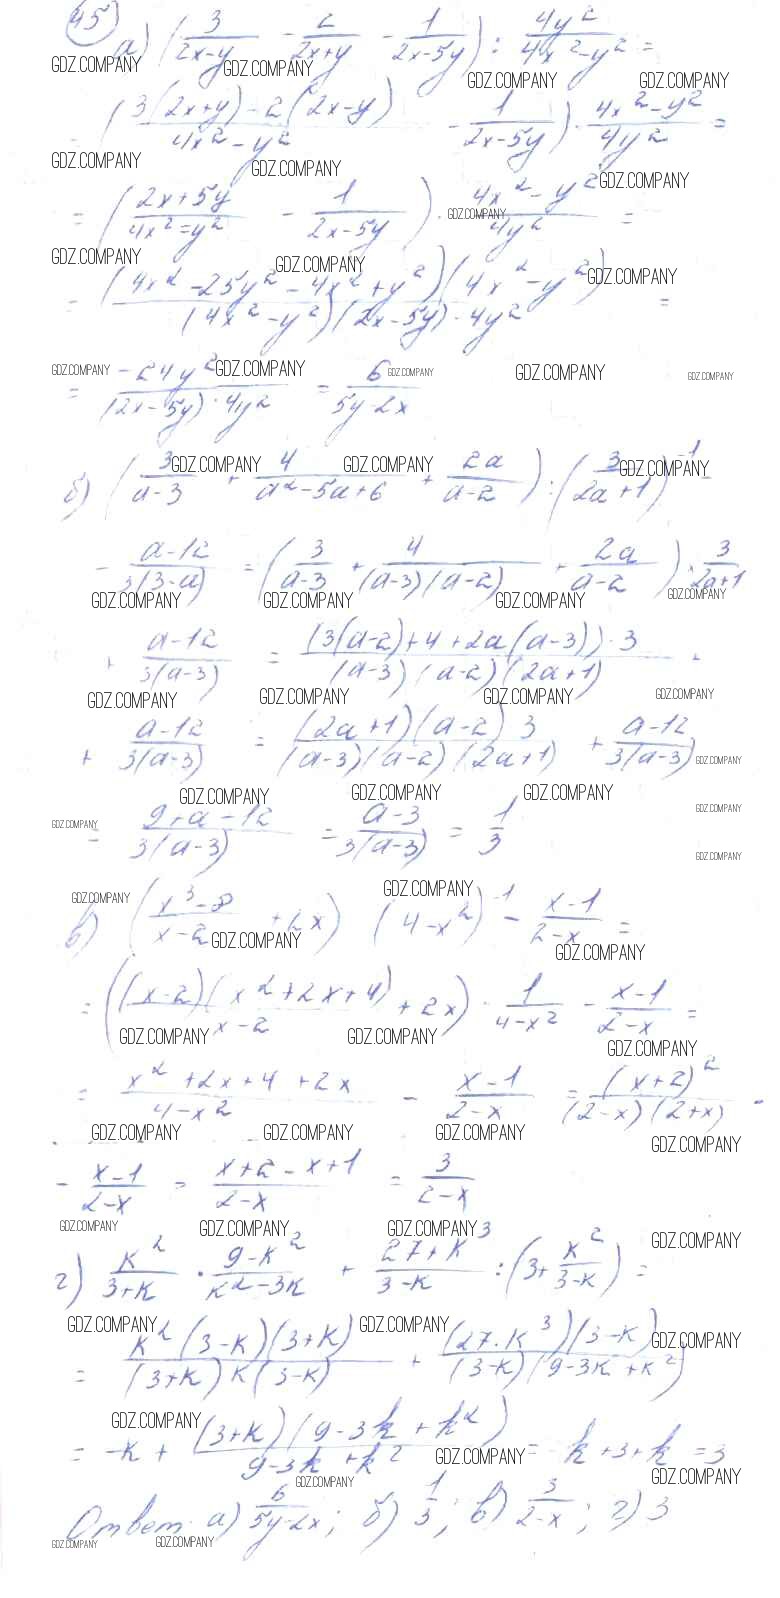 45
а) (3/(2x-y) - 2/(2x+y) - 1/(2x-5y)) : 4y²/(4x²-y²) =
= ((3(2x+y)-2(2x-y))/(4x²-y²) - 1/(2x-5y)) · (4x²-y²)/4y² =
= ((2x+5y)/(4x²=y²) - 1/(2x-5y)) · (4x²-y²)/4y² =
= (4x²-25y²-4x²+y²)(4x²-y²)/((4x²-y²)(2x-5y)·4y²) =
= -24y²/((2x-5y)·4y²) = 6/(5y-2x)
б) (3/(a-3) + 4/(a²-5a+6) + 2a/(a-2)) : (3/(2a+1))⁻¹ -
- (a-12)/(3(3-a)) = (3/(a-3) + 4/((a-3)(a-2)) + 2a/(a-2)) · 3/(2a+1)
+ (a-12)/(3(a-3)) = (3(a-2)+4+2a(a-3))·3/((a-3)(a-2)(2a+1)) +
+ (a-12)/(3(a-3)) = (2a+1)(a-2)3/((a-3)(a-2)(2a+1)) + (a-12)/(3(a-3))
= (9+a-12)/(3(a-3)) = (a-3)/(3(a-3)) = 1/3
в) ((x³-8)/(x-2) + 2x) (4-x²)⁻¹ - (x-1)/(2-x) =
= ((x-2)(x²+2x+4)/(x-2) + 2x) · 1/(4-x²) - (x-1)/(2-x) =
= (x²+2x+4+2x)/(4-x²) - (x-1)/(2-x) = (x+2)²/((2-x)(2+x)) -
- (x-1)/(2-x) = (x+2-x+1)/(2-x) = 3/(2-x)
г) k²/(3+k) · (9-k²)/(k²-3k) + (27+k³)/(3-k) : (3+k²/(3-k)) =
= k²(3-k)(3+k)/((3+k)k(3-k)) + (27·k³)(3-k)/((3-k)(9-3k+k²))
= -k + (3+k)(9-3k+k²)/(9-3k+k²) = -k+3+k = 3
Ответ: а) 6/(5y-2x); б) 1/3; в) 3/(2-x); г) 3
GDZ.COMPANY